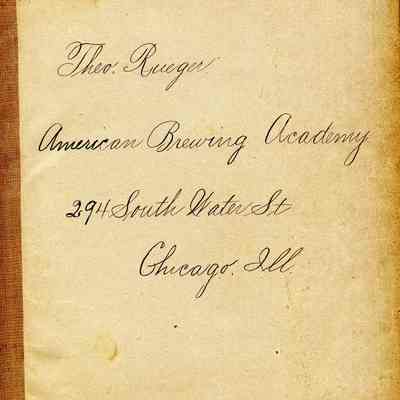 Theo. Rueger
American Brewing Academy
294 South Water St
Chicago. Ill.